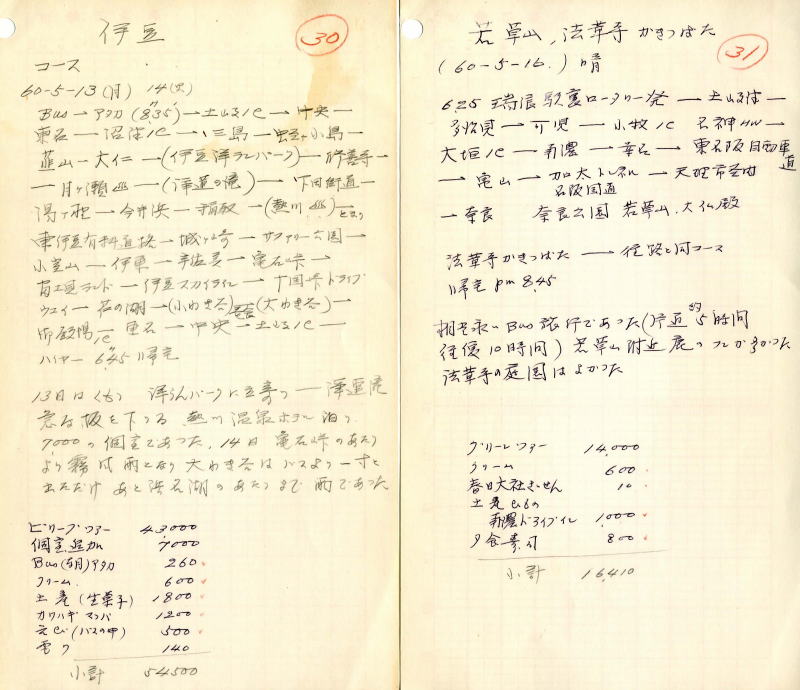 伊豆
30
コース
60-5-13(月) 14(火)
Bus → アタカ (8.35) → 土山IC → 中央 →
東名 → 沼津IC → 三島 → 蛭ヶ小島 →
韮山 → 大仁 → (伊豆洋ランパーク) → 修善寺 →
→ 月ヶ瀬 → (浄蓮の滝) → 下田街道 →
湯ヶ野 → 今井浜 → 稲取 → (熱川) → とまり
東伊豆有料道路 → 城ヶ崎 → サファリー公園 →
小室山 → 伊東 → 宇佐美 → 亀石峠 →
伊豆スカイライン → 十国峠ドライブ
ウェイ → 芦の湖 → (小わき谷) (大わき谷) →
御殿場IC → 東名 → 中央 → 土山IC →
ハイヤー 6.45 帰宅
13日は(くもり) 洋らんパークに立寄り → 浄蓮滝
急な坂を下りる 熱川温泉ホテル泊り
7,000の個室であった、14日 亀石峠のあたり
より霧 雨となり 大わき谷はバスより一寸と
出ただけ あと浜名湖のあたりまで 雨であった
43000
個室追加 7000
Bus アタカ 260
フィルム 600
土産 (生菓子) 1800
カワハギ 1200
(バスの中) 500
電ワ 140
小計 54500
若草山、法華寺かきつばた
31
(60-5-16.) 晴
6.25 瑞浪駅裏ロータリー発 → 土山IC →
多治見 → 可児 → 小牧IC 名神HW →
大垣IC → 養老 → 東名阪自動車道
→ 亀山 → 加太トンネル → 天理市
名阪国道
→ 奈良 奈良公園 若草山、大仏殿
法華寺かきつばた → 往路と同コース
帰宅 pm 8.45
相当永いBus旅行であった(片道約5時間
往復10時間) 若草山附近 鹿のフンが多かった
法華寺の庭園はよかった
グリーンツアー 14,000
フィルム 600
春日大社さいせん 10
土産
ドライブイン 1,000
夕食寿司 800
小計 16,410